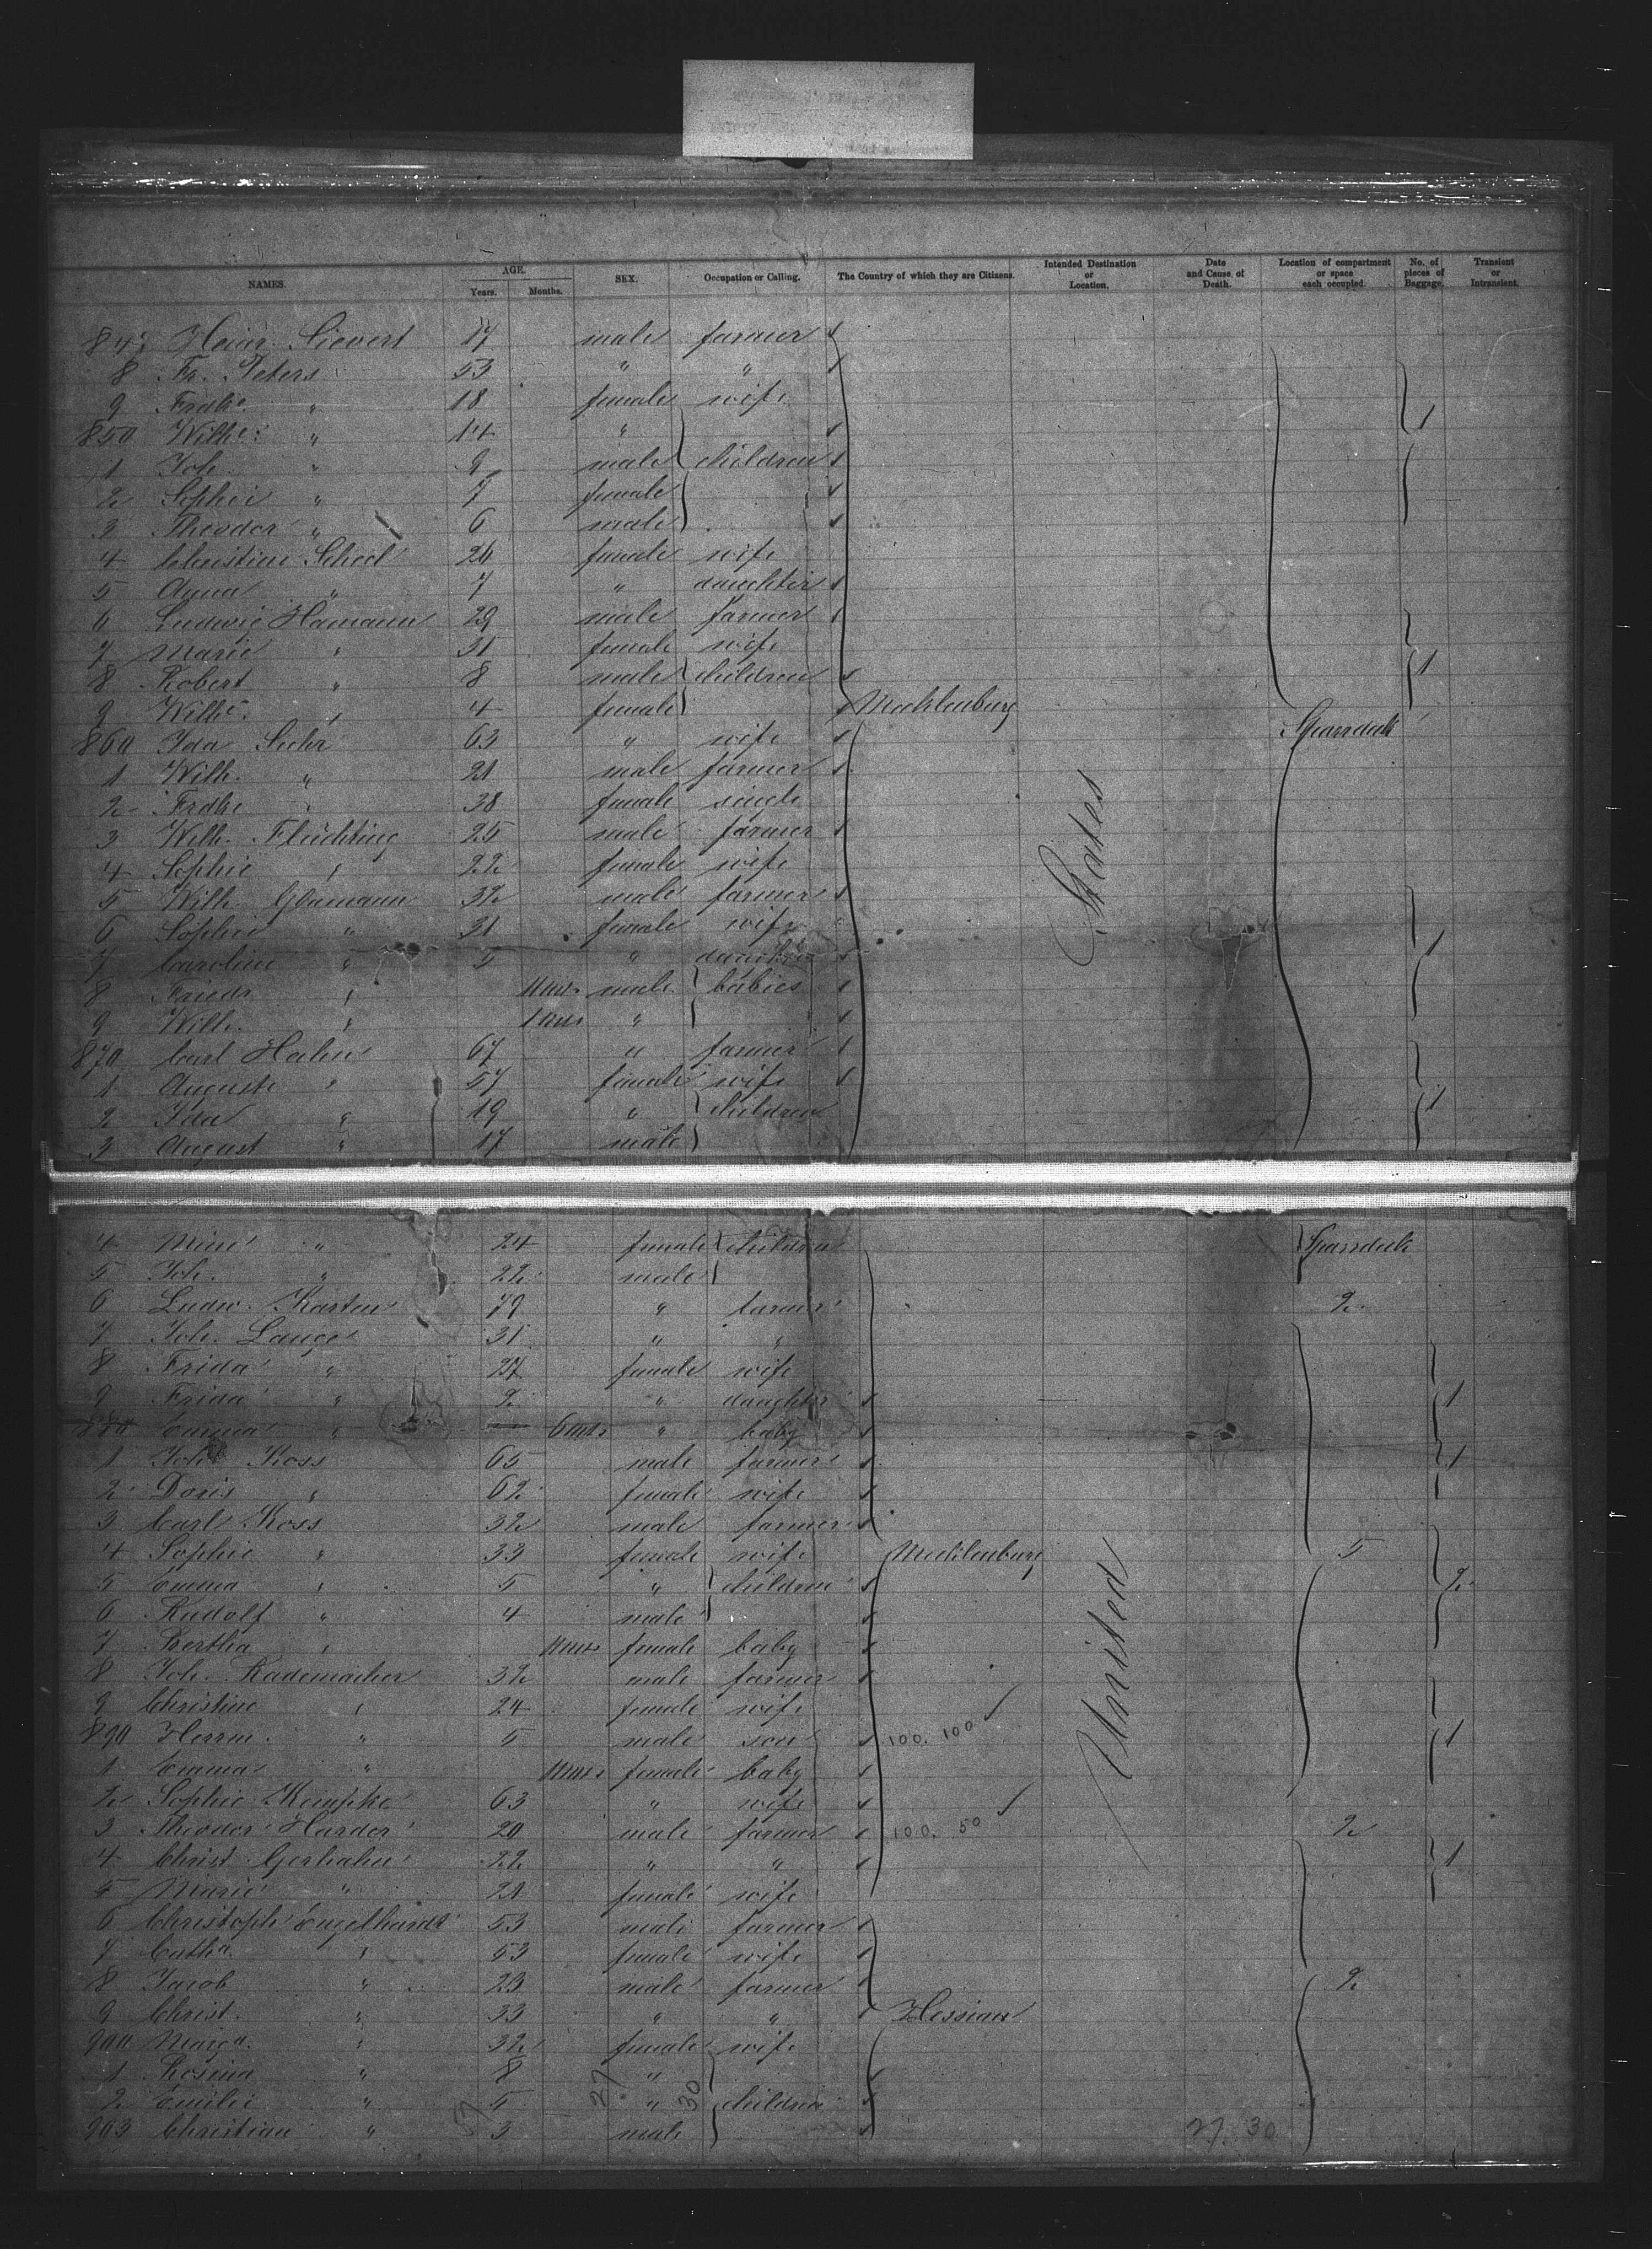 NAMES. AGE. Years. Months. SEX. Occupation or Calling. The Country of which they are Citizens. Intended Destination or Location. Date and Cause of Death. Location of compartment or space each occupied. No. of pieces of Baggage. Transient or Intransient.
847 Heinr. Sievert 17 male farmer
8 Fr. Peters 53 " "
9 Frdke. " 18 female wife 1
850 Wilhe. " 14 "
1 Joh. " 9 male children
2 Sophie " 7 female
3 Theodor " 6 male
4 Christine Scheel 26 female wife
5 Anna " 7 " daughter
6 Ludwig Hamann 29 male farmer
7 Marie " 31 female wife
8 Robert " 8 male children 1
9 Wilhe. " 4 female Mecklenburg
860 Ida Suhr 63 " wife Spardeck
1 Wilh. " 21 male farmer
2 Frdke " 38 female single
3 Wilh. Fluchting 25 male farmer
4 Sophie " 22 female wife States
5 Wilh. Glamann 32 male farmer
6 Sophie " 31 female wife
7 Caroline " 5 " daughter 1
8 Friedr. " 11 mos. male babies
9 Wilh. " 1 mos "
870 Carl Hahn 67 " farmer
1 Auguste " 57 female wife
2 Ida " 19 " children 1
3 August " 17 male
4 Mine " 24 female children Spardeck
5 Joh. " 22 male
6 Ludw. Karsten 79 " farmer 2
7 Joh. Lange 31 " "
8 Frida " 27 female wife
9 Frida " 2 " daughter 1
880 Emma " 6 mos " baby
1 Joh. Koss 65 male farmer 1
2 Doris " 62 female wife
3 Carl Koss 32 male farmer
4 Sophie " 33 female wife Mecklenburg 5
5 Emma " 5 " children 2
6 Rudolf " 4 male
7 Bertha " 11 mos female baby
8 Joh. Rademacher 32 male farmer United
9 Christine " 24 female wife
890 Herm. " 5 male son 100. 100 1
1 Emma " 11 mos female baby
2 Sophie Kempke 63 " wife
3 Theodor Harder 20 male farmer 100. 50 2
4 Christ. Gerhahn 22 " " 1
5 Marie " 21 female wife
6 Christoph Engelhardt 53 male farmer
7 Catha. " 53 female wife
8 Jacob " 23 male farmer 2
9 Christ. " 33 " " Hessian
900 Marga. " 32 female wife
1 Rosina " 8 "
2 Emilie " 5 " children
903 Christian " 3 male
27 30
27. 30